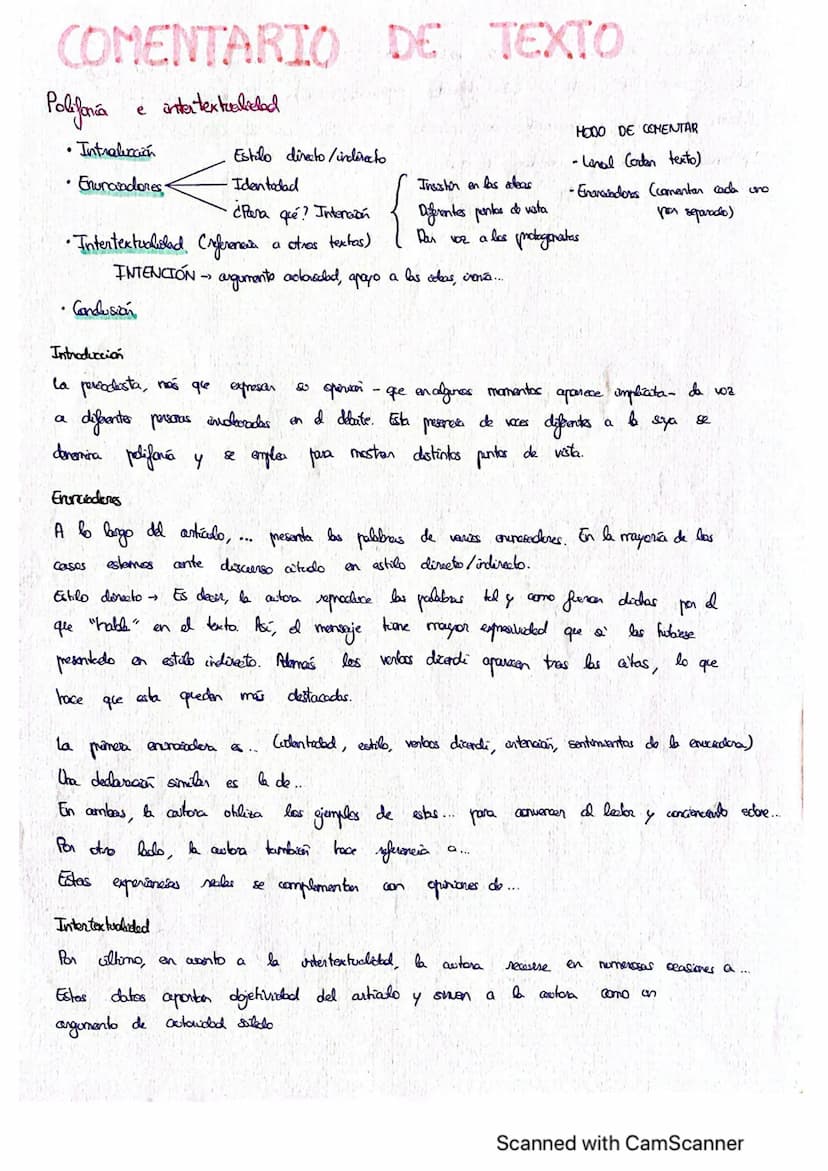 COMENTARIO DE TEXTO
Polifonía e intertextualidad
• Introducción
• Enunciadores
Estilo directo/indirecto
Identidad
¿Para qué? Intención
Insistir en las ideas
Diferentes puntos de vista
Dar voz a los protagonistas
MODO DE COMENTAR
- Lineal (orden texto)
- Enunciadores (comentar cada uno por separado)
• Intertextualidad (referencia a otros textos)
INTENCIÓN → argumento autoridad, apoyo a las ideas, ironía...
• Conclusión
Introducción
La periodista, más que expresar su opinión - que en algunos momentos aparece implícita - da voz
a diferentes personas involucradas en el debate. Esta presencia de voces diferentes a la suya se
denomina polifonía y se emplea para mostrar distintos puntos de vista.
Enunciadores
A lo largo del artículo, ... presenta las palabras de varios enunciadores. En la mayoría de los
casos estamos ante discurso citado en estilo directo/indirecto.
Estilo directo → Es decir, la autora reproduce las palabras tal y como fueron dichas por el
que "habla" en el texto. Así, el mensaje tiene mayor expresividad que si las hubiese
presentado en estilo indirecto. Además los verbos dicendi aparecen tras las citas, lo que
hace que esta queden más destacadas.
La primera enunciadora es .. (identidad, estilo, verbos dicendi, intención, sentimientos de la enunciadora)
Una declaración similar es la de ..
En ambas, la autora utiliza los ejemplos de estas ... para convencer al lector y concienciarlo sobre ...
Por otro lado, la autora también hace referencia a ...
Estas experiencias reales se complementan con opiniones de ...
Intertextualidad
Por último, en cuanto a la intertextualidad, la autora recurre en numerosas ocasiones a ...
Estos datos aportan objetividad del artículo y sirven a la autora como un
argumento de autoridad sólido
Scanned with CamScanner